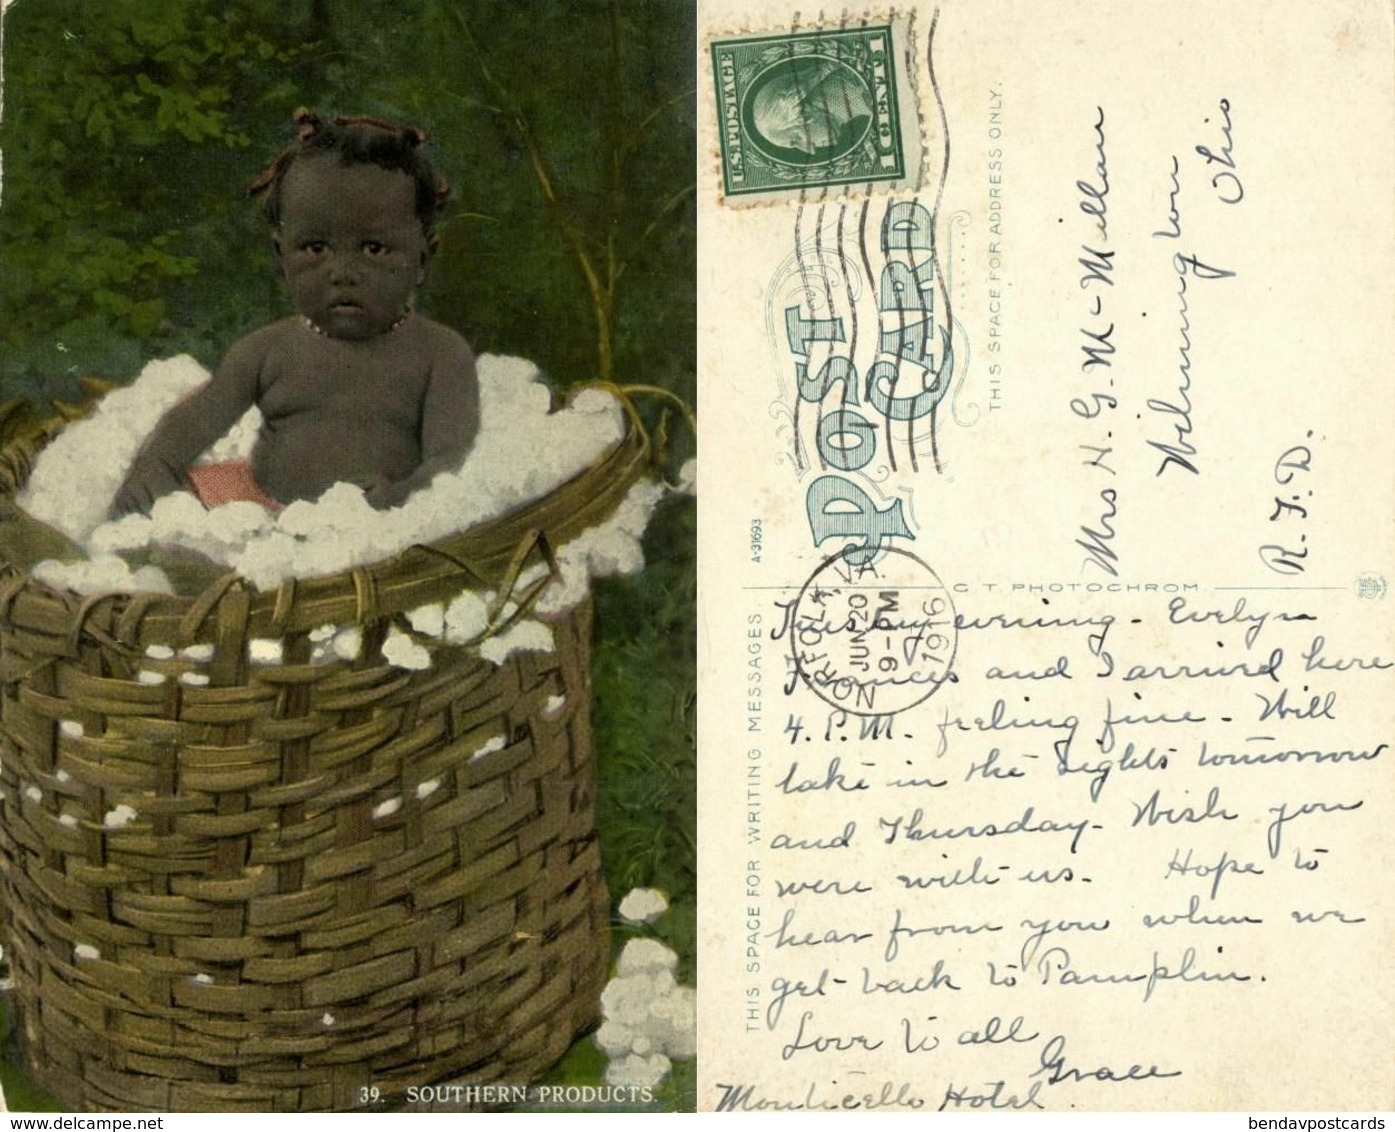 39. SOUTHERN PRODUCTS.
U.S. POSTAGE
1 CENT 1
POST
CARD
THIS SPACE FOR ADDRESS ONLY.
Mrs H. G. McMillan
Wilmington
Ohio
R. F. D.
A-31693
C T PHOTOCHROM
NORFOLK, VA.
JUN 20
9-PM
1916
THIS SPACE FOR WRITING MESSAGES
Tuesday evening - Evelyn
Frances and I arrived here
4. P.M. feeling fine - Will
take in the sights tomorrow
and Thursday - Wish you
were with us. Hope to
hear from you when we
get back to Pamplin.
Love to all
Grace
Monticello Hotel.
www.delcampe.net
bendavpostcards